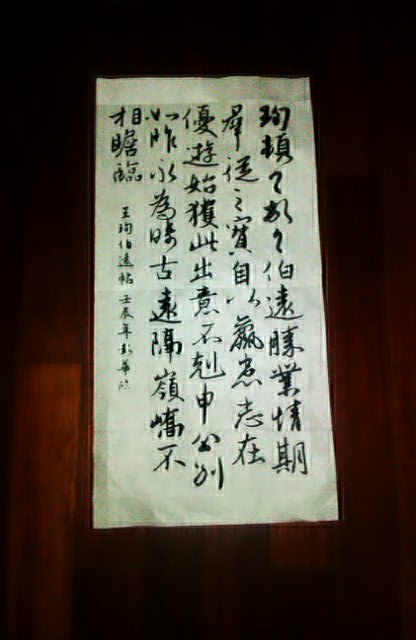 珣頓首頓首伯遠勝業情期
羣從之寶自以羸患志在
優遊始獲此出意不剋申分別
如昨永為疇古遠隔嶺嶠不
相瞻臨
王珣伯遠帖壬辰年彭華臨